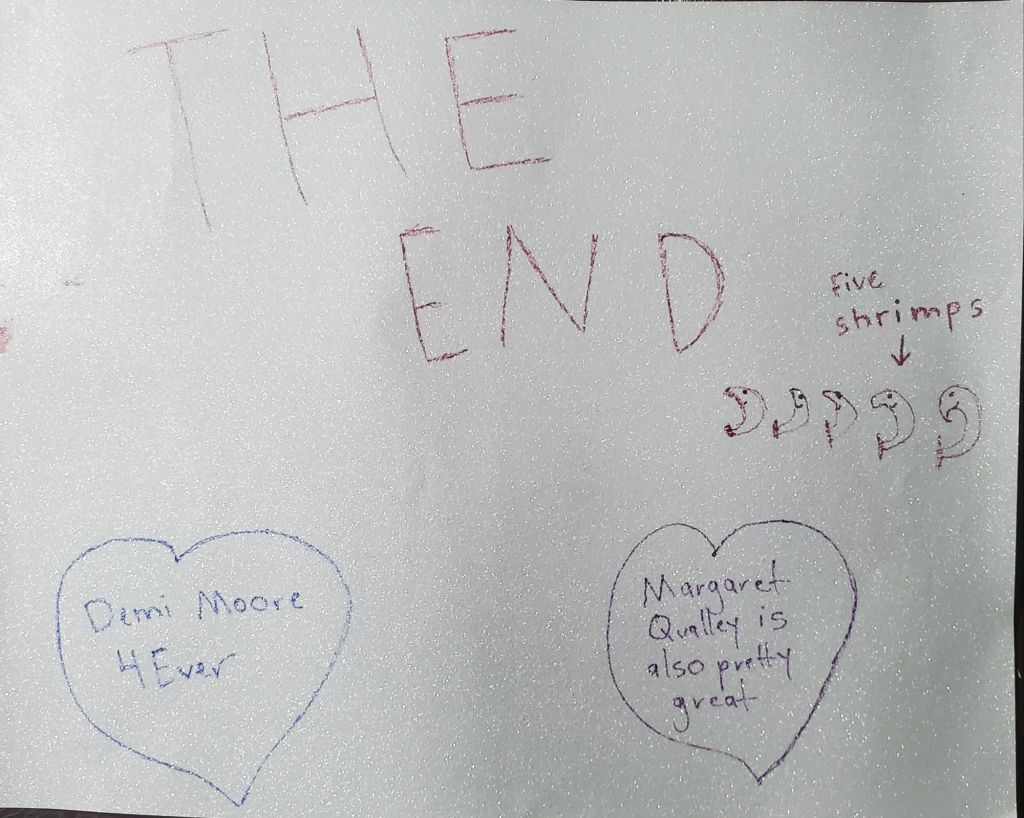 THE
END
Five
shrimps
Demi Moore
4 Ever
Margaret
Qualley is
also pretty
great